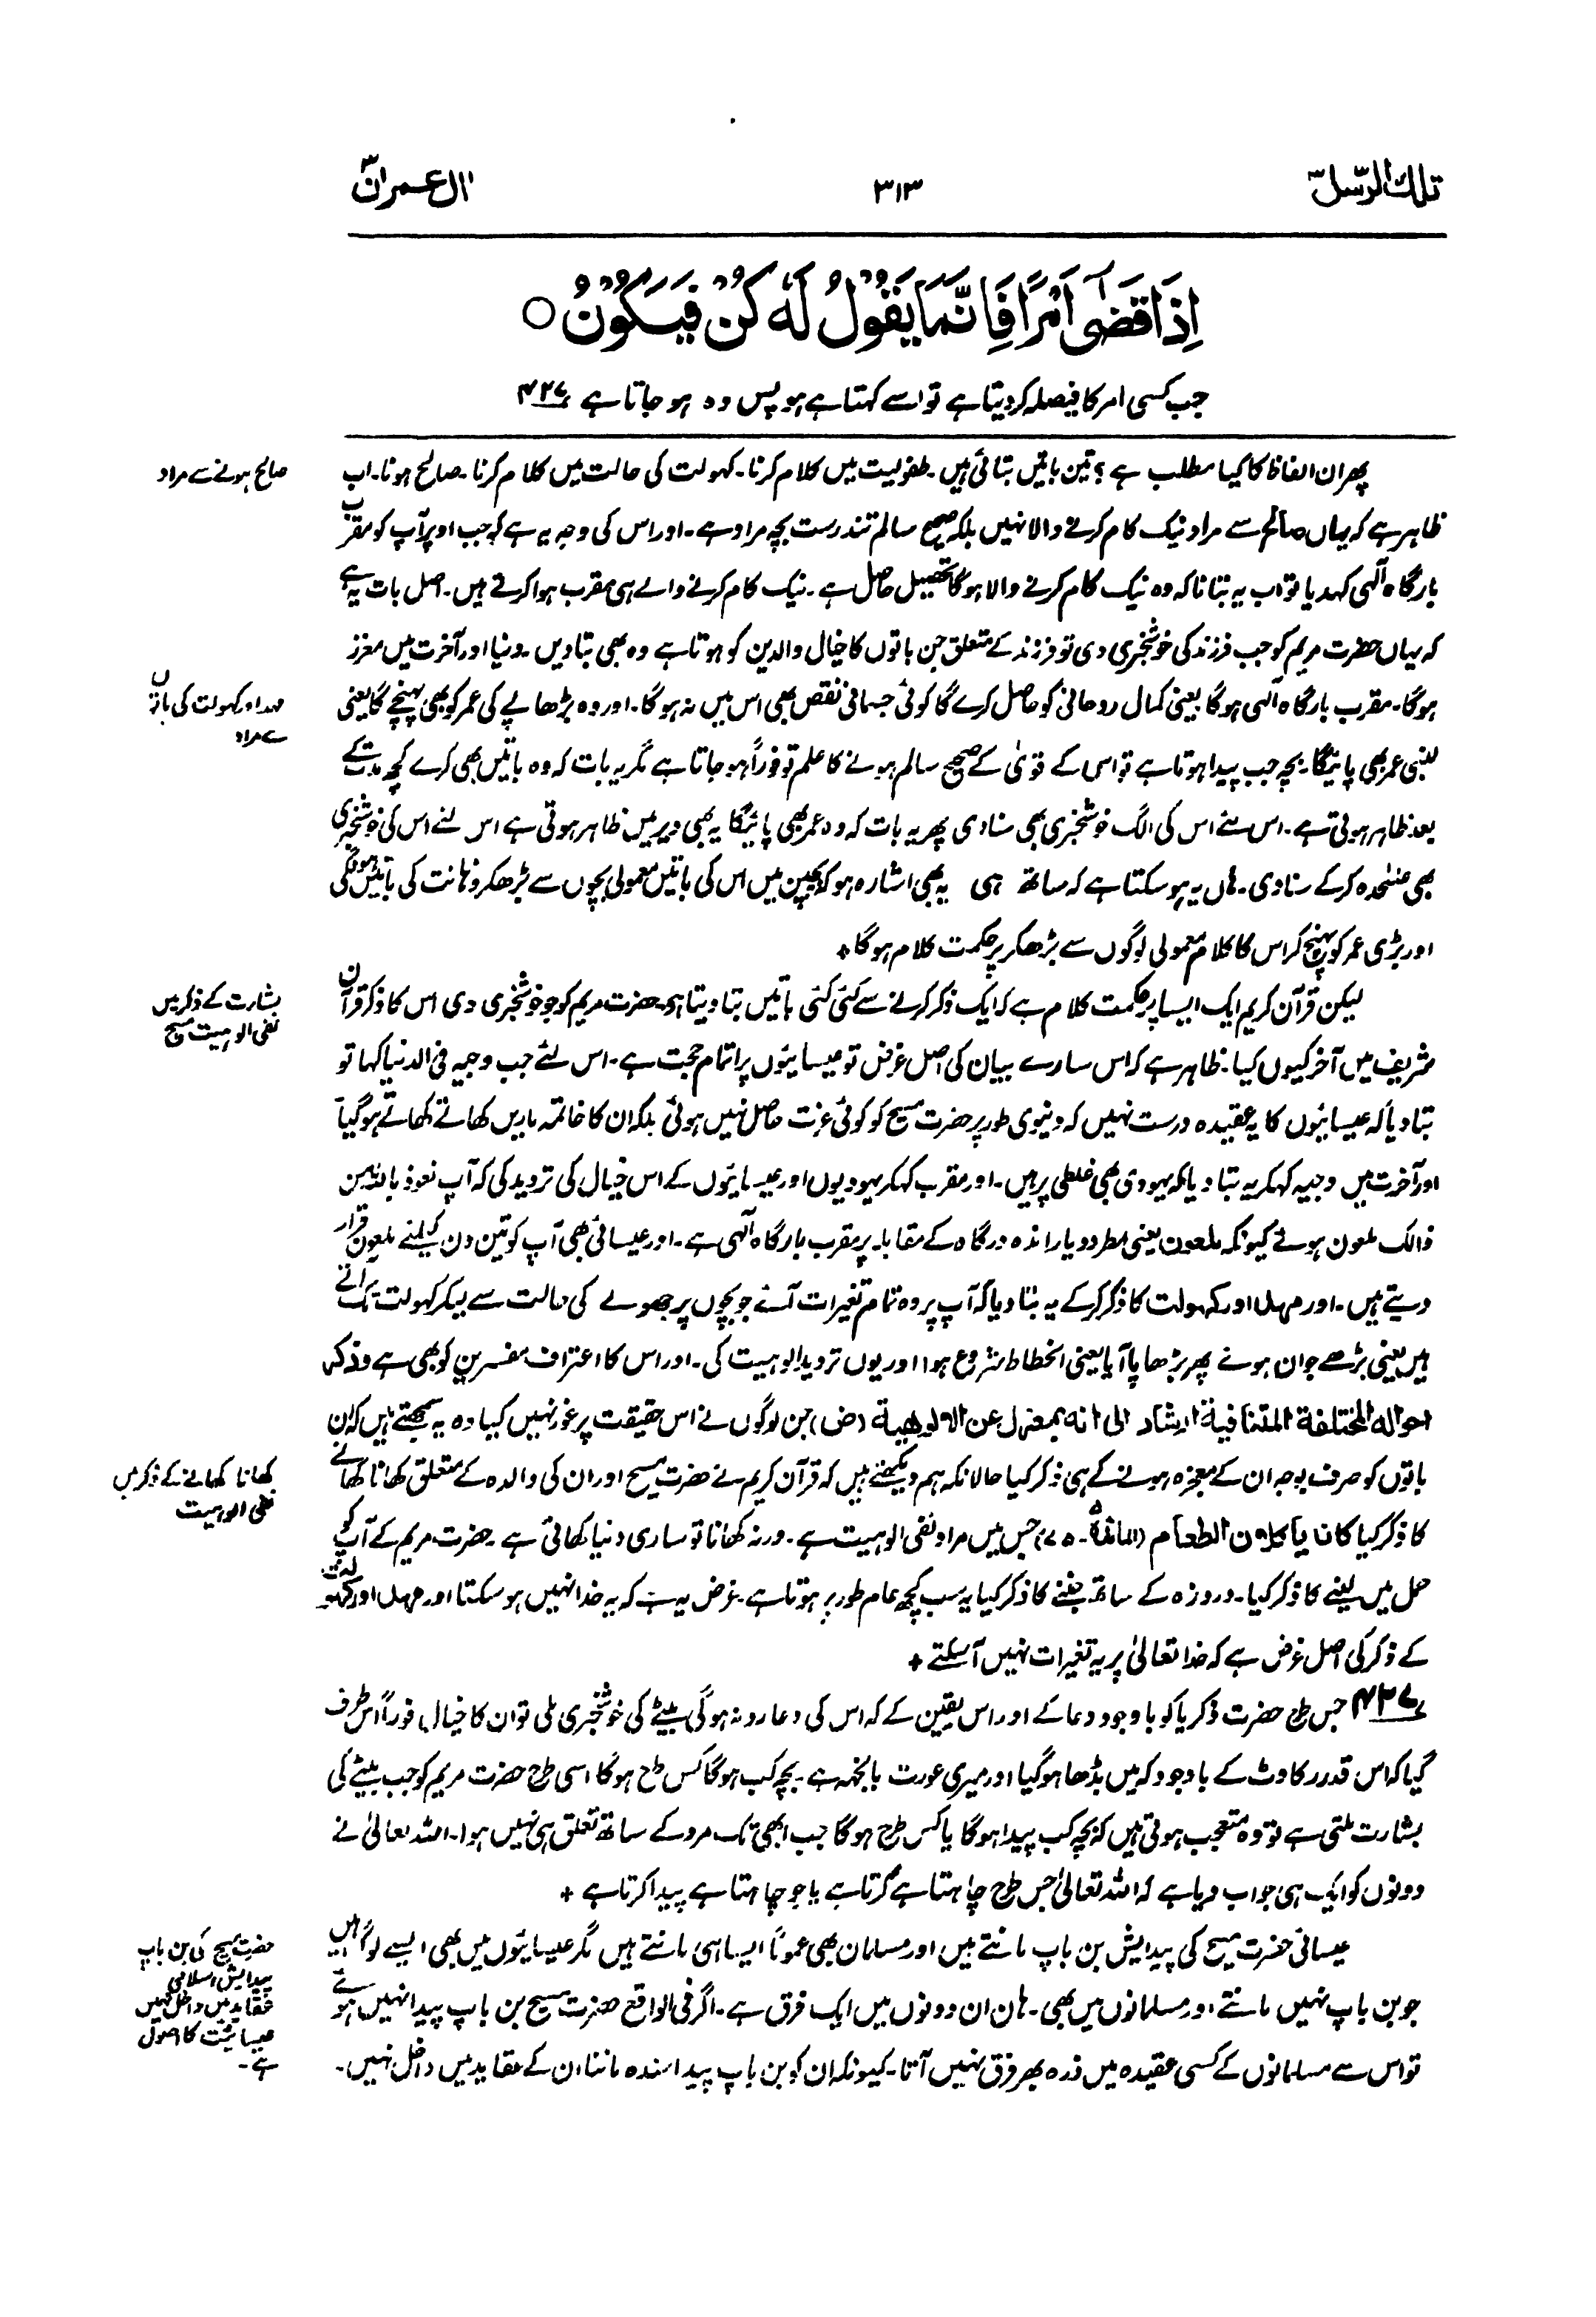 تلك الرّسل ۳
۳۱۳
اٰل عمرٰن ۳
اِذَا قَضٰۤى اَمْرًا فَاِنَّمَا يَقُوْلُ لَهٗ كُنْ فَيَكُوْنُ ○
جب کسی امر کا فیصلہ کر دیتا ہے تو اسے کہتا ہے ہو پس وہ ہو جاتا ہے ۴۲۷
پھر ان الفاظ کا کیا مطلب ہے؟ تین باتیں بتائی ہیں۔ طفولیت میں کلام کرنا۔ کہولت کی حالت میں کلام کرنا۔ صالح ہونا۔ اب
صالح ہونے سے مراد
ظاہر ہے کہ یہاں صالح سے مراد نیک کام کرنے والا نہیں بلکہ صحیح سالم تندرست بچہ مراد ہے۔ اور اس کی وجہ یہ ہے کہ جب اوپر آپ کو مقرب
بارگاہ آلٰہی کہدیا تو اب یہ بتانا کہ وہ نیک کام کرنے والا ہوگا تحصیل حاصل ہے۔ نیک کام کرنے والے ہی مقرب ہوا کرتے ہیں۔ اصل بات یہ ہے
کہ یہاں حضرت مریم کو جب فرزند کی خوشخبری دی تو فرزند کے متعلق جن باتوں کا خیال والدین کو ہوتا ہے وہ بھی بتادیں۔ دنیا اور آخرت میں معزز
ہوگا۔ مقرب بارگاہ آلٰہی ہوگا یعنی کمال روحانی کو حاصل کرے گا کوئی جسمانی نقص بھی اس میں نہ ہوگا۔ اور وہ بڑھاپے کی عمر کو بھی پہنچے گا یعنی
مہد اور کہولت کی باتوں
سے مراد
لنبی عمر بھی پائیگا۔ بچہ جب پیدا ہوتا ہے تو اس کے قویٰ کے صحیح سالم ہونے کا علم تو فوراً ہو جاتا ہے مگر یہ بات کہ وہ باتیں بھی کرے کچھ مدت کے
بعد ظاہر ہوتی ہے۔ اس لئے اس کی الگ خوشخبری بھی سنادی پھر یہ بات کہ وہ عمر بھی پائیگا یہ بھی دیر میں ظاہر ہوتی ہے اس لئے اس کی خوشخبری
بھی علٰحدہ کرکے سنادی۔ ہاں یہ ہو سکتا ہے کہ ساتھ ہی یہ بھی اشارہ ہو کہ بچپن میں اس کی باتیں معمولی بچوں سے بڑھکر ذہانت کی باتیں ہونگی
اور بڑی عمر کو پہنچ کر اس کا کلام معمولی لوگوں سے بڑھکر پر حکمت کلام ہوگا +
لیکن قرآن کریم ایک ایسا پر حکمت کلام ہے کہ ایک ذکر کرنے سے کئی کئی باتیں بتا دیتا ہے۔ حضرت مریم کو جو خوشخبری دی اس کا ذکر قرآن
بشارت کے ذکر میں
نفی الوہیت مسیح
شریف میں آخر کیوں کیا۔ ظاہر ہے کہ اس سارے بیان کی اصل غرض تو عیسائیوں پر اتمام حجت ہے۔ اس لئے جب وجیہ فی الدنیا کہا تو
بتا دیا کہ عیسائیوں کا یہ عقیدہ درست نہیں کہ دنیوی طور پر حضرت مسیح کو کوئی عزت حاصل نہیں ہوئی بلکہ ان کا خاتمہ ماریں کھاتے کھاتے ہوگیا
اور آخرت میں وجیہ کہکر یہ بتا دیا کہ یہودی بھی غلطی پر ہیں۔ اور مقرب کہکر یہودیوں اور عیسائیوں کے اس خیال کی تردید کی کہ آپ نعوذ باللہ من
ذالک ملعون ہوئے کیونکہ ملعون یعنی مطرود یا راندہ درگاہ کے مقابلہ پر مقرب بارگاہ آلٰہی ہے۔ اور عیسائی بھی آپ کو تین دن کیلئے ملعون قرار
دیتے ہیں۔ اور مہد اور کہولت کا ذکر کرکے یہ بتا دیا کہ آپ پر وہ تمام تغیرات آئے جو بچوں پر جھولے کی حالت سے لیکر کہولت تک آتے
ہیں یعنی بڑھے جوان ہوئے پھر بڑھاپا آیا یعنی انحطاط شروع ہوا اور یوں تردید الوہیت کی۔ اور اس کا اعتراف مفسرین کو بھی ہے وذکر
احواله المختلفة المتنافية ارشاد الى انه بمعزل عن الالوهية (ض) جن لوگوں نے اس حقیقت پر غور نہیں کیا وہ یہ سمجھتے ہیں کہ ان
باتوں کو صرف بوجہ ان کے معجزہ ہونے کے ہی ذکر کیا حالانکہ ہم دیکھتے ہیں کہ قرآن کریم نے حضرت مسیح اور ان کی والدہ کے متعلق کھانا کھانے
کھانا کھانے کے ذکر میں
نفی الوہیت
کا ذکر کیا كانا ياكلان الطعام (المائدة ۵۔ ۷۵) جس میں مراد نفی الوہیت ہے۔ ورنہ کھانا تو ساری دنیا کھاتی ہے۔ حضرت مریم کے آپ کو
حمل میں لینے کا ذکر کیا۔ دروزہ کے ساتھ جننے کا ذکر کیا یہ سب کچھ عام طور پر ہوتا ہے۔ غرض یہ ہے کہ یہ خدا نہیں ہو سکتا اور مہد اور کہولت
کے ذکر کی اصل غرض ہے کہ خدا تعالیٰ پر یہ تغیرات نہیں آسکتے +
۴۲۷ جس طرح حضرت ذکریا کو باوجود دعا کے اور اس یقین کے کہ اس کی دعا رد نہ ہوگی بیٹے کی خوشخبری ملی تو ان کا خیال فوراً اس طرف
گیا کہ اس قدر رکاوٹ کے باوجود کہ میں بڈھا ہوگیا اور میری عورت بانجھ ہے۔ بچہ کب ہوگا کس طرح ہوگا اسی طرح حضرت مریم کو جب بیٹے کی
بشارت ملتی ہے تو وہ متعجب ہوتی ہیں کہ بچہ کب پیدا ہوگا یا کس طرح ہوگا جب ابھی تک مرد کے ساتھ تعلق ہی نہیں ہوا۔ اللہ تعالیٰ نے
دونوں کو ایک ہی جواب دیا ہے کہ اللہ تعالیٰ جس طرح چاہتا ہے کرتا ہے یا جو چاہتا ہے پیدا کرتا ہے +
عیسائی حضرت مسیح کی پیدایش بن باپ مانتے ہیں اور مسلمان بھی عموماً ایسا ہی مانتے ہیں مگر عیسائیوں میں بھی ایسے لوگ ہیں
حضرت مسیح کی بن باپ
پیدایش اسلامی
عقاید میں داخل نہیں
عیسائیت کا اصول
ہے۔
جو بن باپ نہیں مانتے اور مسلمانوں میں بھی۔ ہاں ان دونوں میں ایک فرق ہے۔ اگر فی الواقع حضرت مسیح بن باپ پیدا نہیں ہوئے
تو اس سے مسلمانوں کے کسی عقیدہ میں ذرہ بھر فرق نہیں آتا۔ کیونکہ ان کو بن باپ پیدا شدہ ماننا ان کے عقاید میں داخل نہیں۔